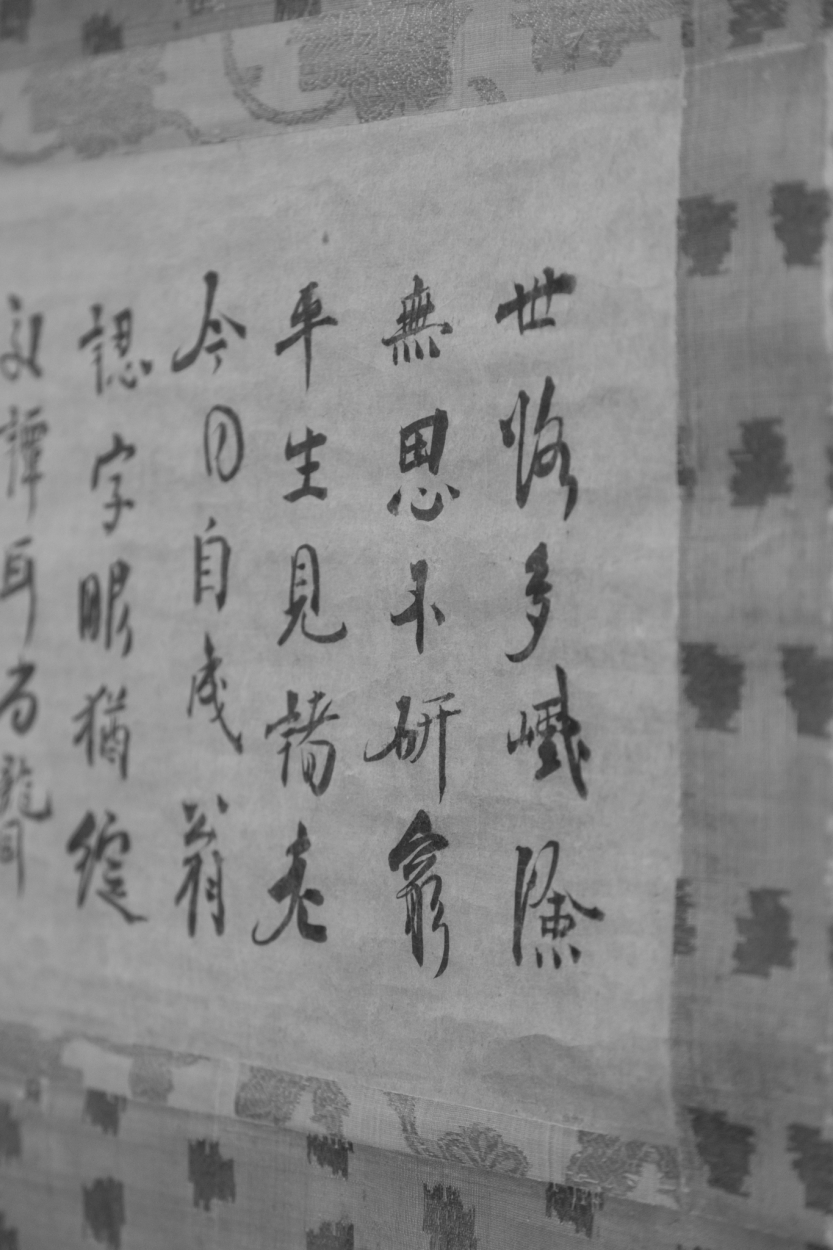 世路多巇險
無思不研窮
平生見諸老
今日自成翁
認字眼猶綻
交譚耳尚聾